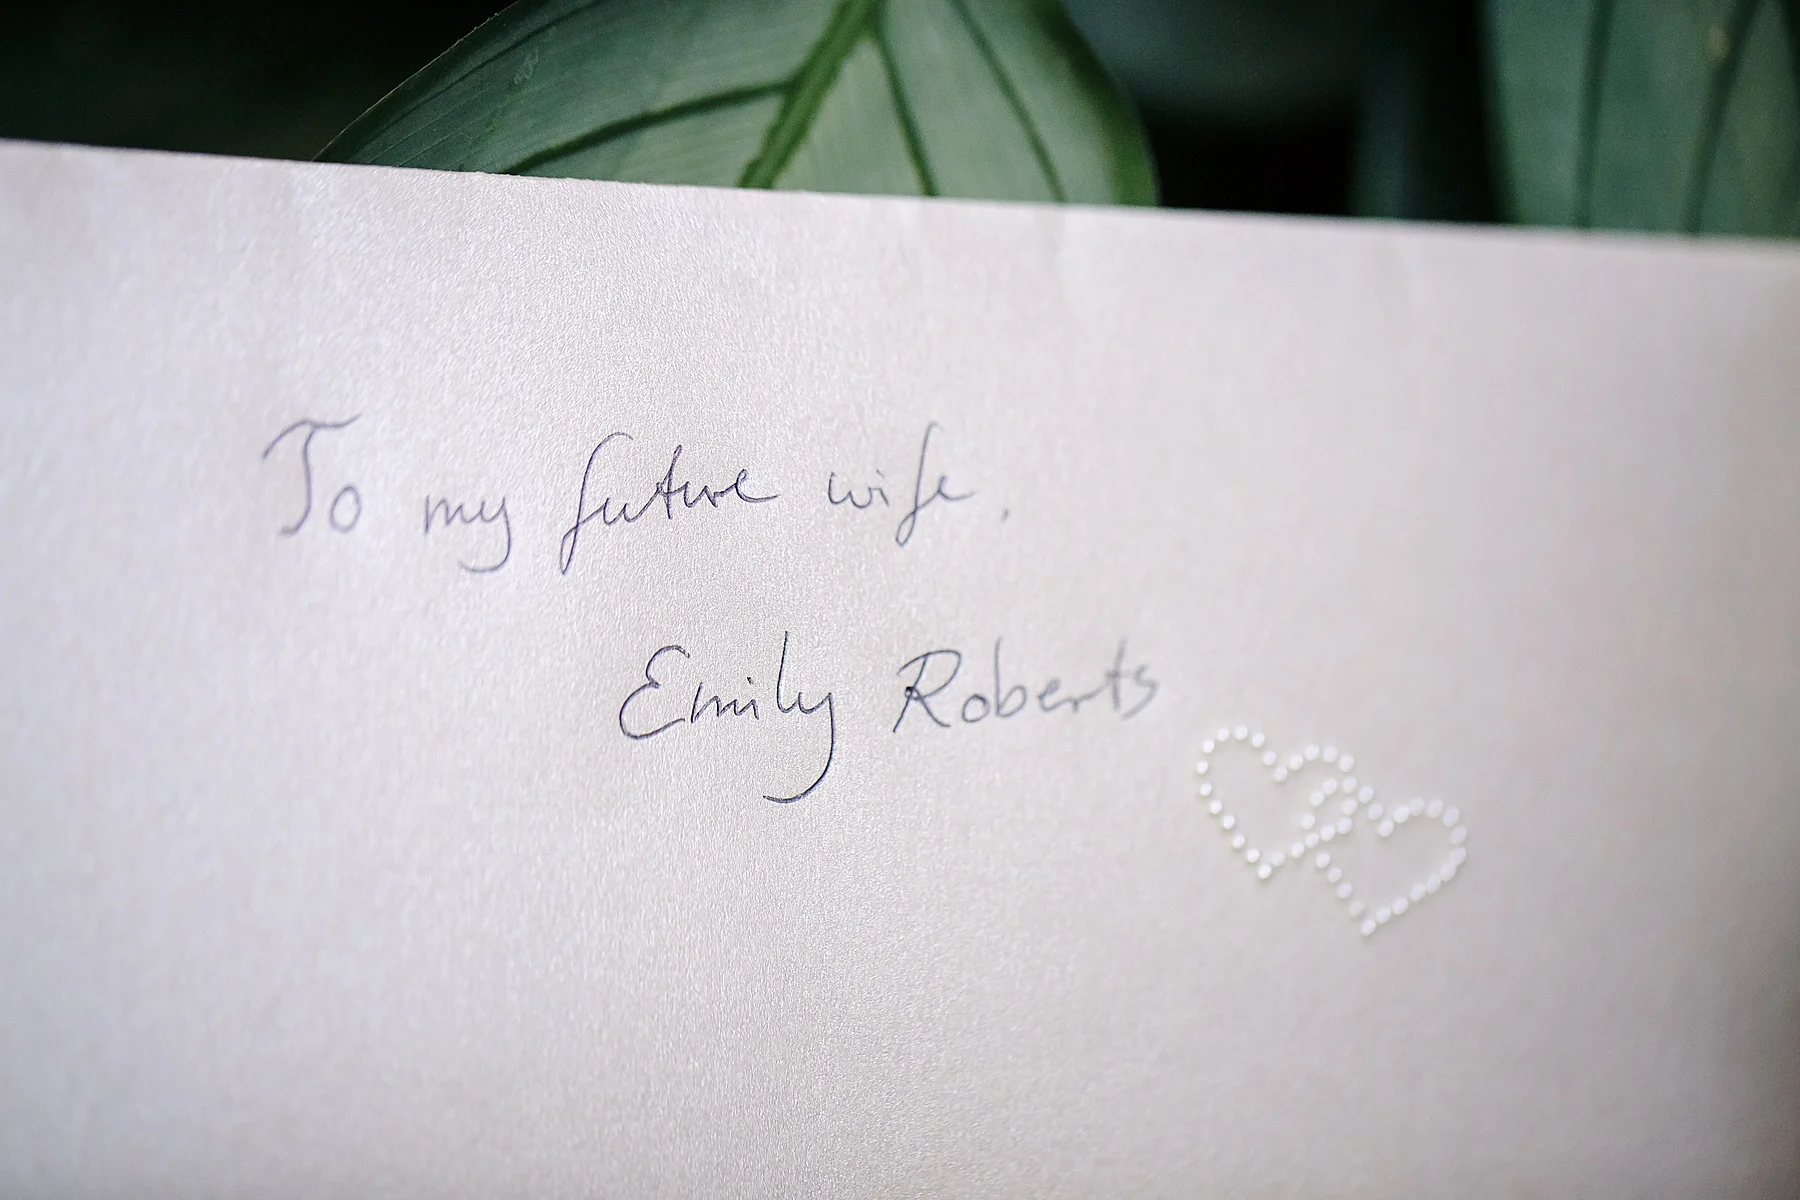 To my future wife,
Emily Roberts